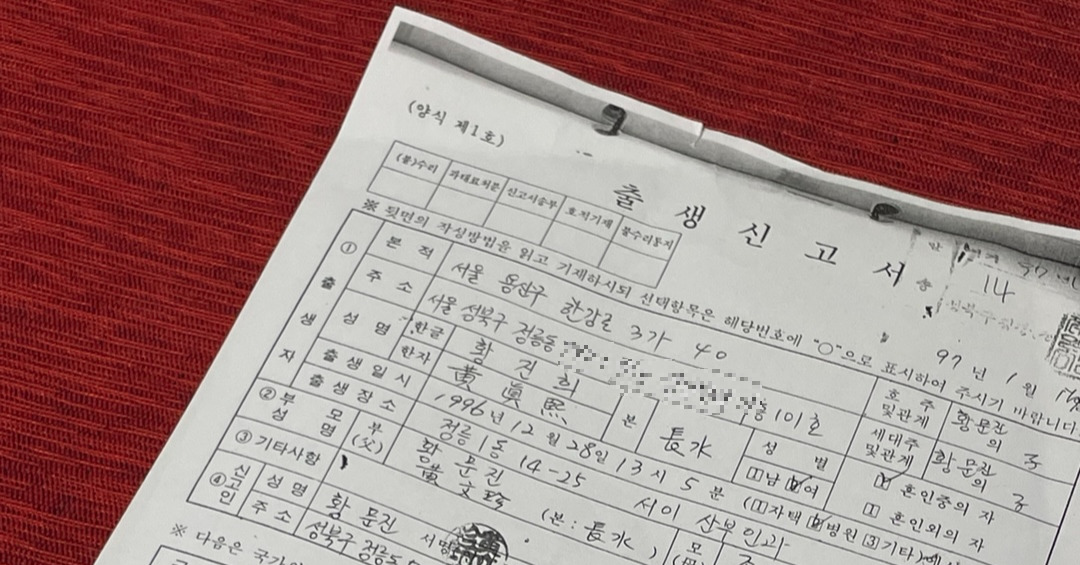 (양식 제1호)
(불)수리 과태료처분 신고서송부 호적기재 불수리통지
출 생 신 고 서
14
97 년 1 월
※ 뒷면의 작성방법을 읽고 기재하시되 선택항목은 해당번호에 "○"으로 표시하여 주시기 바랍니다.
① 출 생 자
본 적 서울 용산구 한강로 3가 40
주 소 서울 성북구 정릉동 101호
호 주 및관계 황문진 의 자
성 명 한글 황 진 희
한자 黃 眞 熙
본 長水
성 별 1남 2여
세대주 및관계 황문진 의 자
출 생 일 시 1996년 12월 28일 13시 5분
혼인중의 자
혼인외의 자
출 생 장 소 정릉 1동 14-25 서이 산부인과 (1자택 2병원 3기타)에서
② 부 모 성 명 부(父) 황 문진
黃 文 (본: 長水)
모
③ 기타사항
④ 신고인 성 명 황 문진 서명
주 소 성북구 정릉동
※ 다음은 국가의